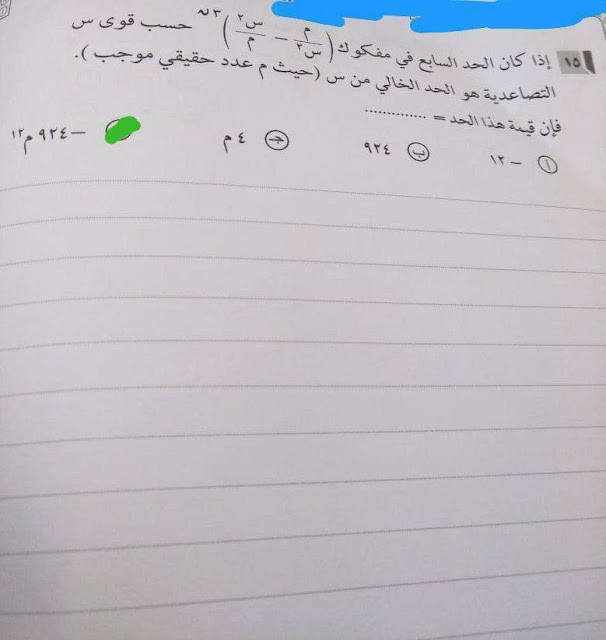 ١٥ إذا كان الحد السابع في مفكوك (م/س٢ − س٢/م)٣ن حسب قوى س
التصاعدية هو الحد الخالي من س (حيث م عدد حقيقي موجب).
فإن قيمة هذا الحد = ..............
أ −١٢ ب ٩٢٤ جـ ٤ م −٩٢٤ م١٢